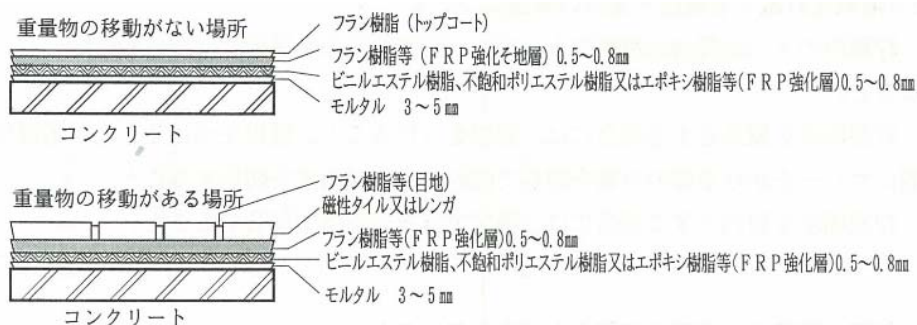 重量物の移動がない場所
フラン樹脂（トップコート）
フラン樹脂等（ＦＲＰ強化そ地層）0.5～0.8㎜
ビニルエステル樹脂、不飽和ポリエステル樹脂又はエポキシ樹脂等（ＦＲＰ強化層）0.5～0.8㎜
モルタル　3～5㎜
コンクリート
重量物の移動がある場所
フラン樹脂等（目地）
磁性タイル又はレンガ
フラン樹脂等（ＦＲＰ強化層）0.5～0.8㎜
ビニルエステル樹脂、不飽和ポリエステル樹脂又はエポキシ樹脂等（ＦＲＰ強化層）0.5～0.8㎜
モルタル　3～5㎜
コンクリート